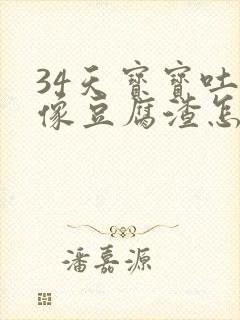 34天寶寶吐
像豆腐渣怎
潘嘉源